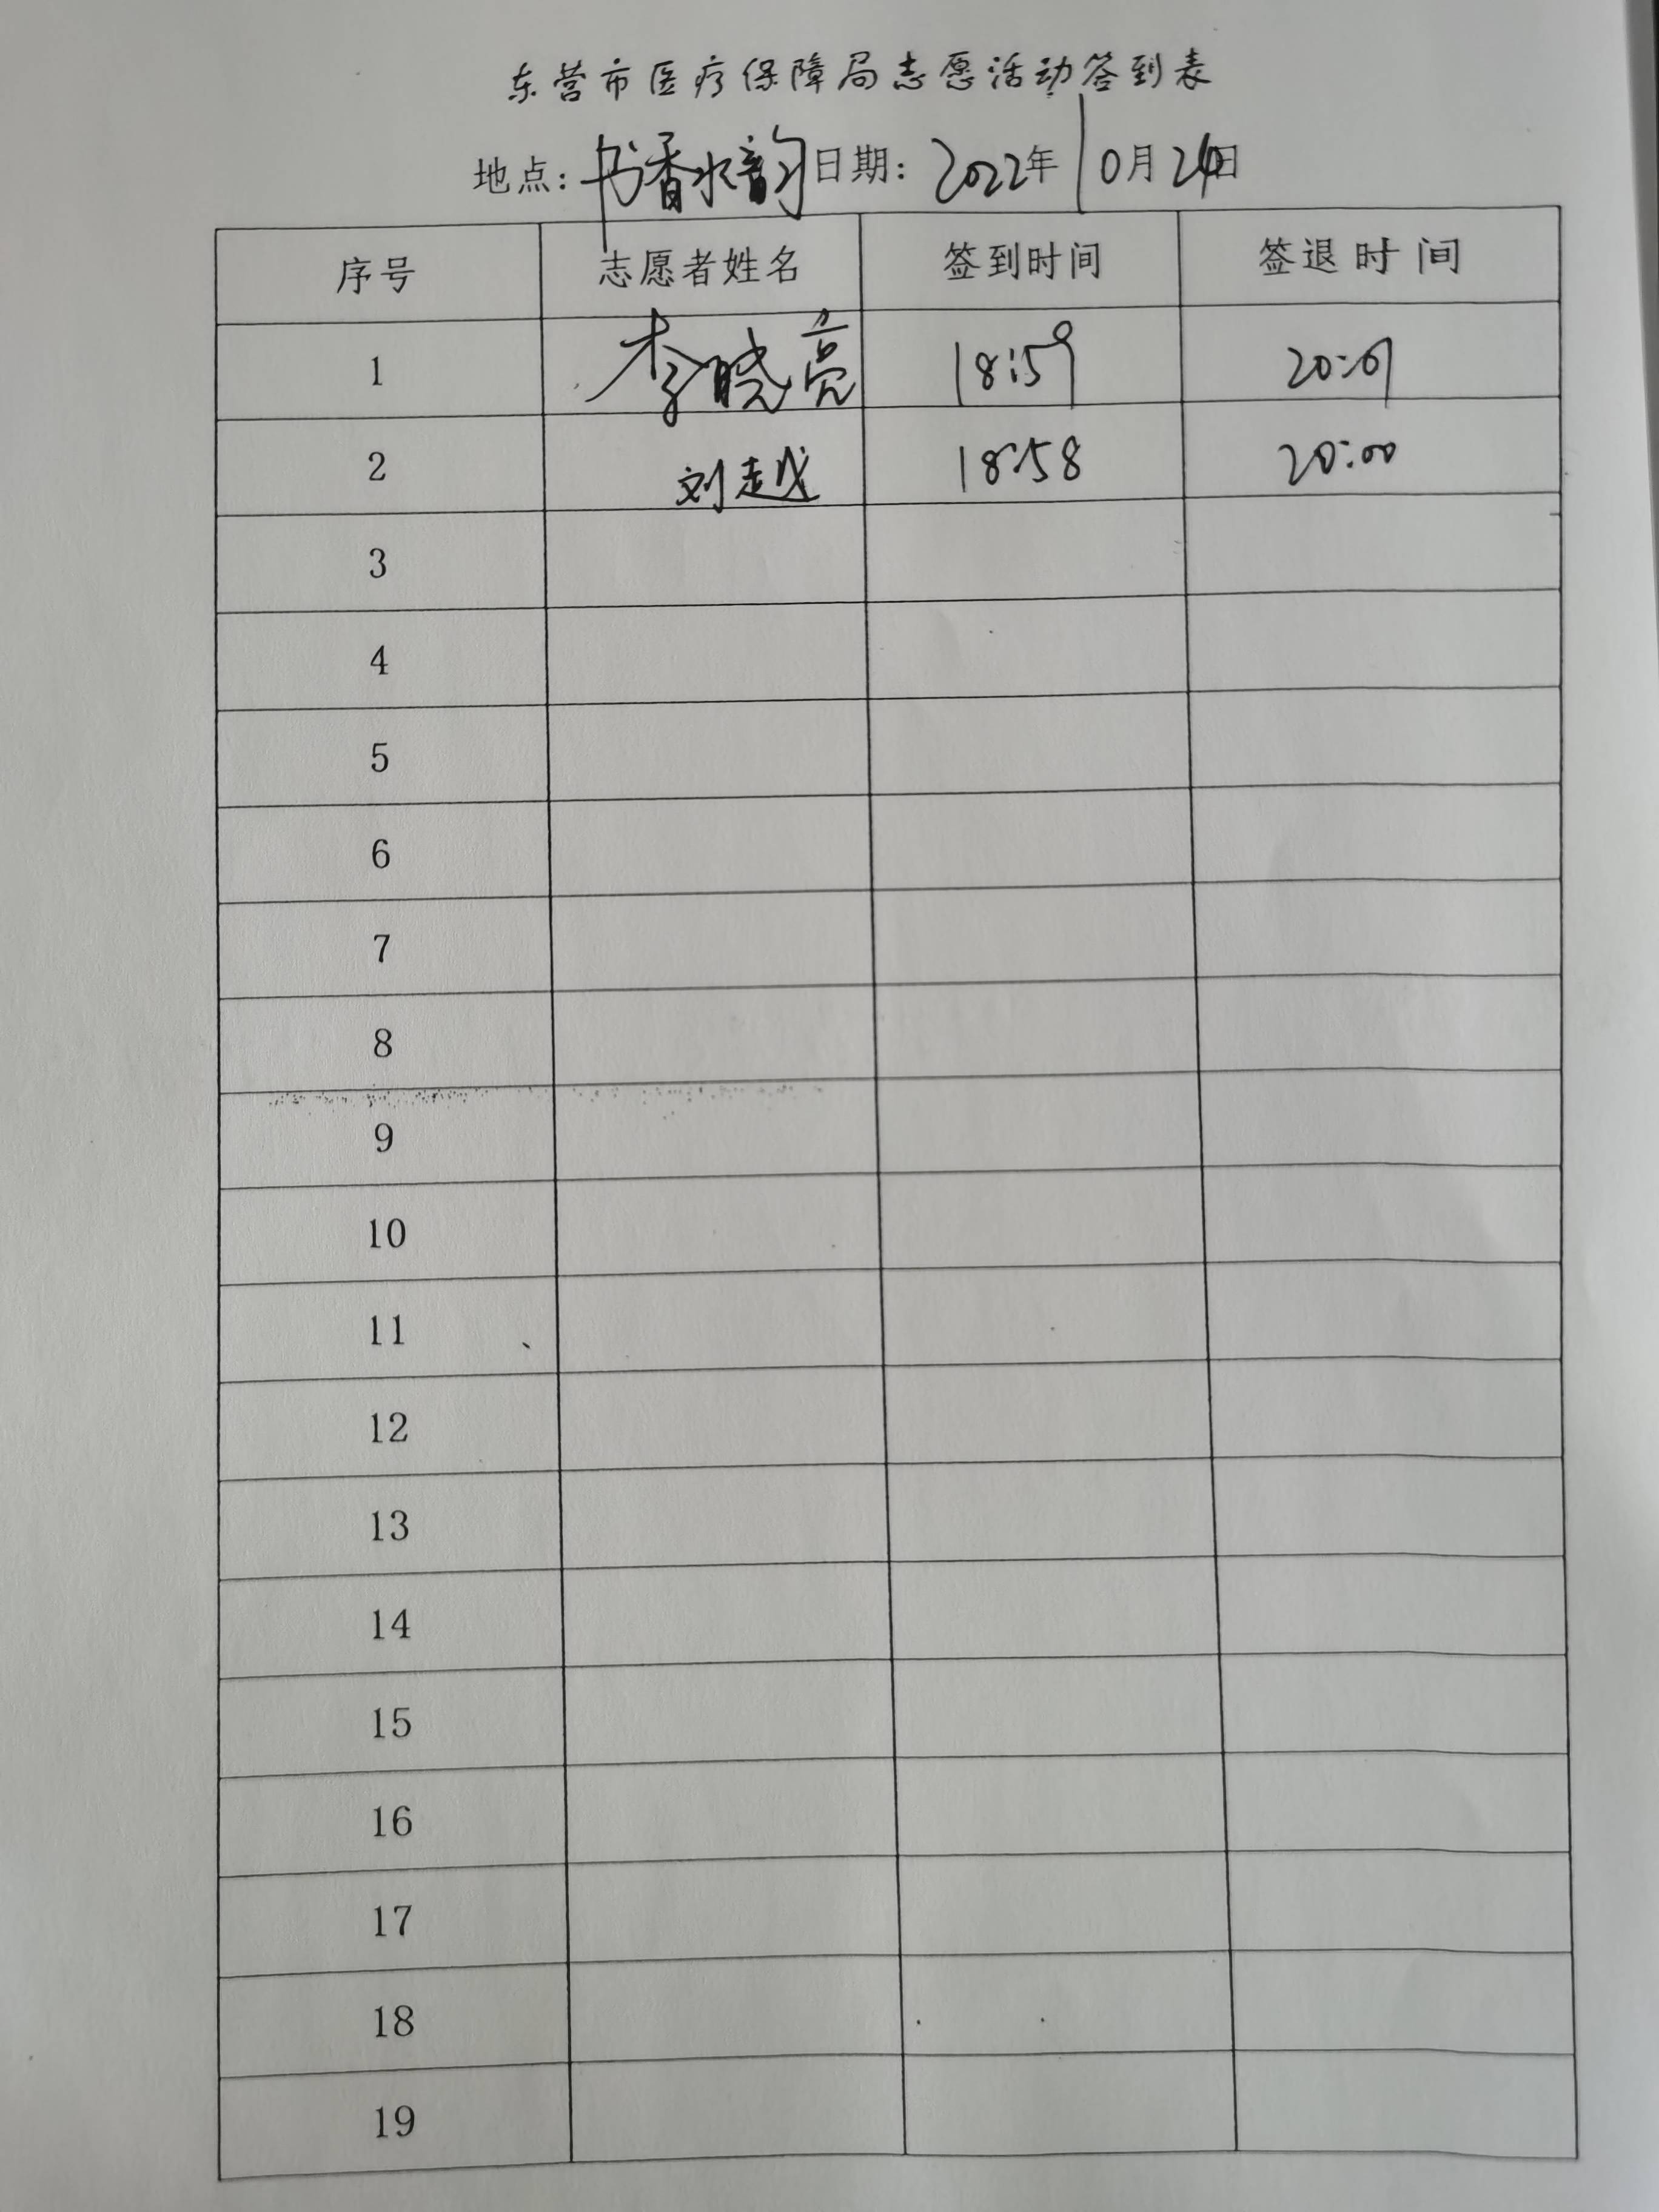 东营市医疗保障局志愿活动签到表
地点：书香水韵 日期：2022年10月24日
序号 志愿者姓名 签到时间 签退时间
1 李晓亮 18:59 20:01
2 刘越 18:58 20:00
3
4
5
6
7
8
9
10
11
12
13
14
15
16
17
18
19